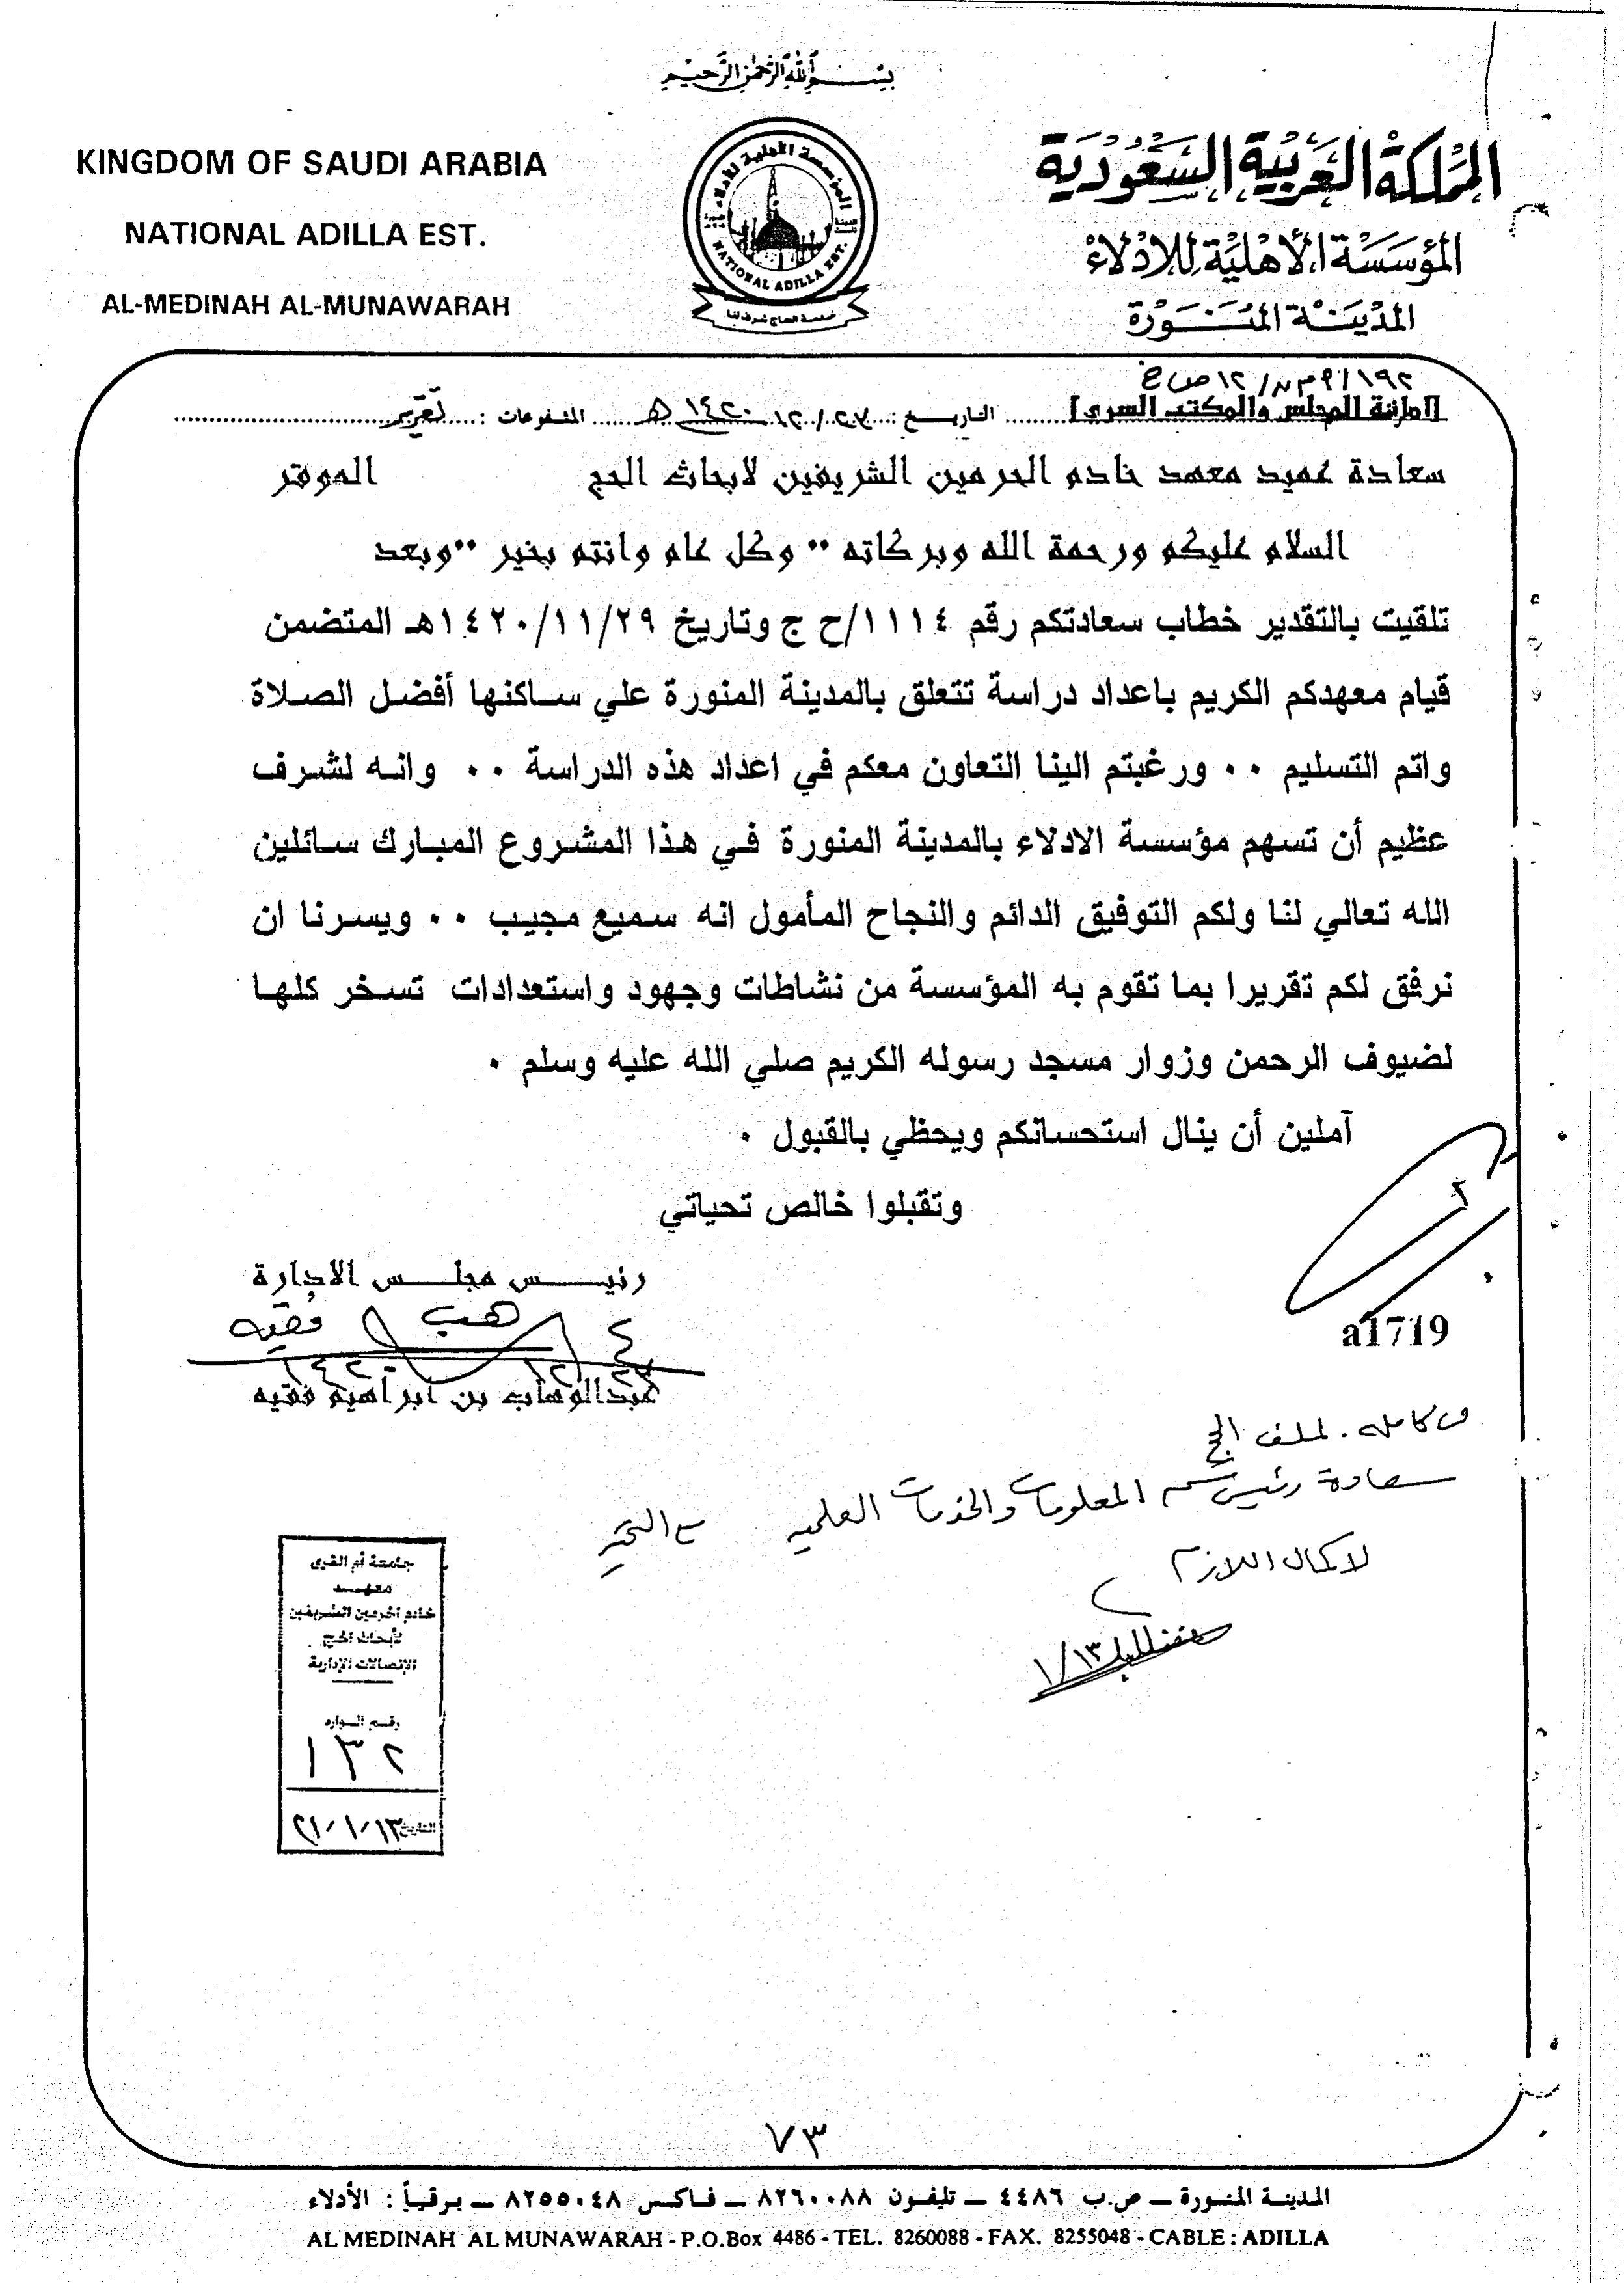 بسم الله الرحمن الرحيم
KINGDOM OF SAUDI ARABIA
NATIONAL ADILLA EST.
AL-MEDINAH AL-MUNAWARAH
المؤسسة الأهلية للأدلاء
NATIONAL ADILLA EST.
خدمة الحاج شرف لنا
المملكة العربية السعودية
المؤسسة الأهلية للادلاء
المدينة المنورة
[امانة المجلس والمكتب السري] التاريخ : ١٤٢٠/١٢/٢٧ هـ المشفوعات : تقرير
سعادة عميد معهد خادم الحرمين الشريفين لابحاث الحج الموقر
السلام عليكم ورحمة الله وبركاته ،، وكل عام وانتم بخير ،، وبعد
تلقيت بالتقدير خطاب سعادتكم رقم ١١١٤/ح ج وتاريخ ١٤٢٠/١١/٢٩هـ المتضمن
قيام معهدكم الكريم باعداد دراسة تتعلق بالمدينة المنورة علي ساكنها أفضل الصلاة
واتم التسليم ٠٠ ورغبتم الينا التعاون معكم في اعداد هذه الدراسة ٠٠ وانه لشرف
عظيم أن تسهم مؤسسة الادلاء بالمدينة المنورة في هذا المشروع المبارك سائلين
الله تعالي لنا ولكم التوفيق الدائم والنجاح المأمول انه سميع مجيب ٠٠ ويسرنا ان
نرفق لكم تقريرا بما تقوم به المؤسسة من نشاطات وجهود واستعدادات تسخر كلها
لضيوف الرحمن وزوار مسجد رسوله الكريم صلي الله عليه وسلم ٠
آملين أن ينال استحسانكم ويحظي بالقبول ٠
وتقبلوا خالص تحياتي
رئيس مجلس الادارة
عبدالوهاب بن ابراهيم فقيه
a1719
لملف الحج
سعادة رئيس قسم المعلومات والخدمات العلمية مع التحية
لاكمال اللازم
١/١٣
جامعة أم القرى
معهد
خادم الحرمين الشريفين
لأبحاث الحج
الإتصالات الإدارية
رقم الوارد
١٣٢
التاريخ ٢١/١/١٣
٧٣
المدينة المنورة ــ ص.ب ٤٤٨٦ ــ تليفون ٨٢٦٠٠٨٨ ــ فاكس ٨٢٥٥٠٤٨ ــ برقياً : الأدلاء
AL MEDINAH AL MUNAWARAH - P.O.Box 4486 - TEL. 8260088 - FAX. 8255048 - CABLE : ADILLA